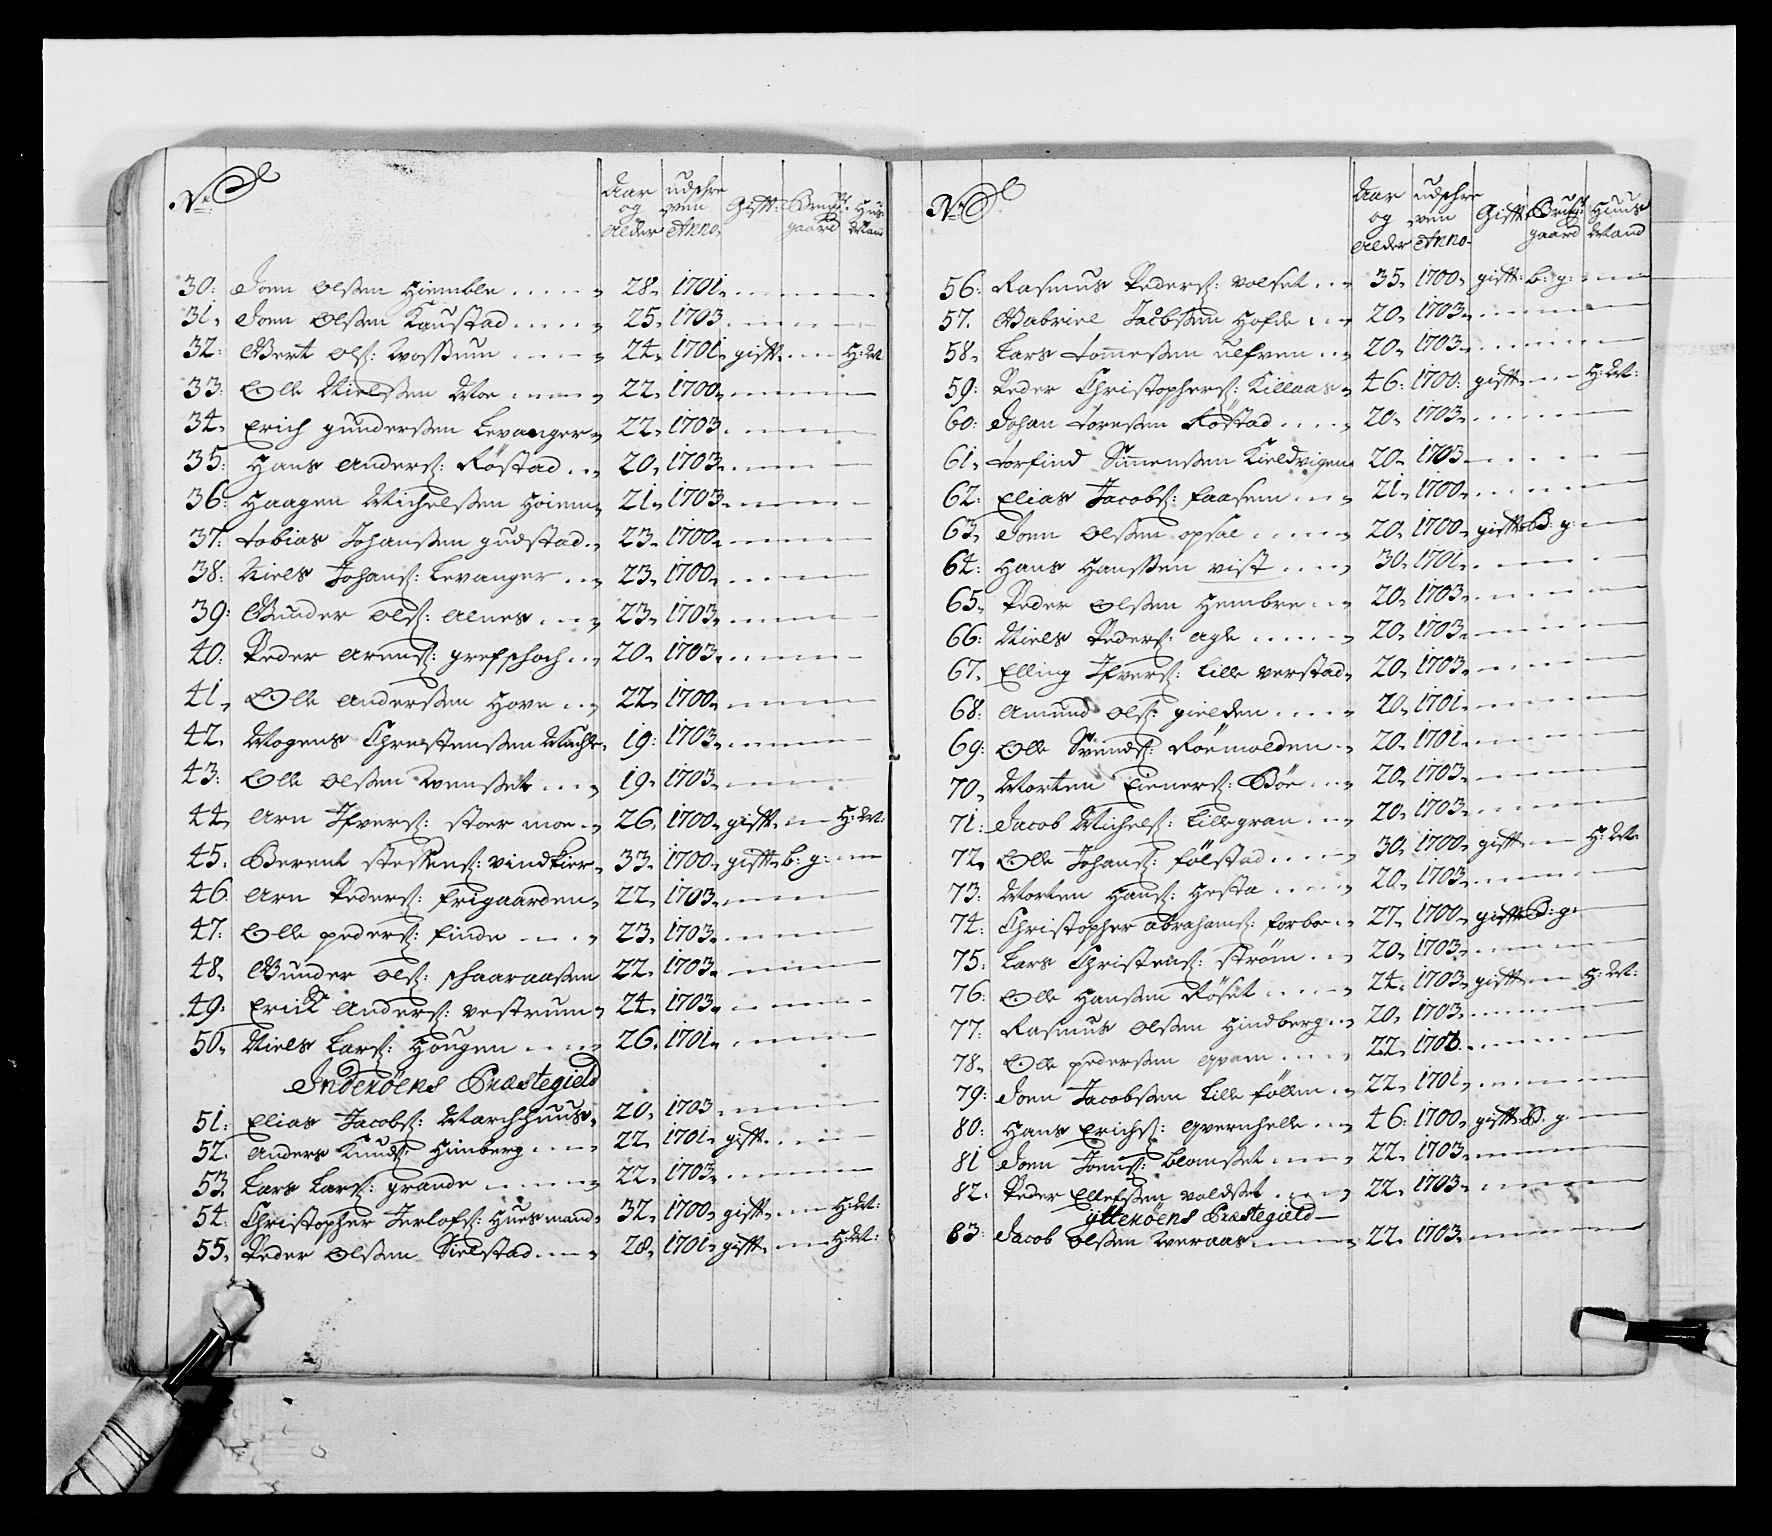 No
Aar og Alder
udschre ven Anno
Gift:
Bruger gaard
Huus Mand
30: Joen Olssen Hiemble 28. 1701.
31. Joen Olssen Kaustad 25. 1703
32: Bert Ols: Wossum 24. 1701. gift. H: M:
33: Olle Nielssen Moe 22. 1700.
34. Erich gunderssen Levanger 22. 1703
35: Hans Anders: Röstad 20. 1703.
36: Haagen Michelssen Hoiem 21. 1703.
37: tobias Johanssen gudstad 23. 1700.
38: Niels Johans: Levanger 23. 1700.
39: Gunder Ols: Alnes 23. 1703.
40: Peder Arens: grefschoch 20. 1703.
41. Olle Anderssen Hove 22. 1700.
42. Mogens Christenssen Machle 19: 1703.
43: Olle Olssen Wensset 19. 1703.
44. Arn Ifvers: stoer moe 26. 1700. gift. H: M:
45. Berent steffens: vindkier 33. 1700. gift. b: g:
46. Arn Peders: frigaarden 22. 1703.
47: Olle peders: finde 23. 1703.
48. Gunder Ols: schaaraassen 22. 1703.
49. Erick Anders: vestrum 24. 1703.
50. Niels Lars: Hougen 26. 1701.
Inderöens Præstegield
51: Elias Jacobs: Marchhuus 20. 1703
52. Anders Knuds: Himberg 22. 1701. gift.
53. Lars Lars: grande 22. 1703.
54: Christopher Jerlofs: Huusmand 32. 1700. gift. H: M:
55. Peder Olssen Sielstad 28. 1701. gift. H: M:
No
Aar og Alder
udschre ven Anno
Gift:
Bruger gaard
Huus Mand
56: Rasmus Peders: volset 35. 1700. gift: b: g:
57. Gabriel Jacobssen Hofde 20. 1703.
58. Lars tommessen ulfven 20. 1703.
59: Peder Christophers: Killaas 46: 1700: gift. H: M:
60: Johan toressen Röstad 20. 1703.
61. torfind Simenssen Kieldvigen 20. 1703
62: Elias Jacobs: faasem 21. 1700.
63. Joen Olssen opsal 20. 1700. gift. B: g:
64: Hans Hanssen vist 30. 1701.
65. Peder Olssen Hembre 20. 1703.
66: Niels Peders: Agle 20. 1703.
67. Elling Ifvers: Lille verstad 20. 1703.
68: Amund Ols: gielden 20. 1701.
69: Olle Svends: Röemolden 20. 1701.
70. Morten Eieners: Böe 20. 1703.
71: Jacob Michels: Lillegran 20. 1703.
72. Olle Johans: fölstad 30. 1700. gift. H: M:
73: Morten Hans: Hesta 20. 1703.
74: Christopher abrahams: forboe 27. 1700. gift. B: g:
75: Lars Christens: ström 20. 1703.
76: Olle Hanssen Röset 24. 1703. gift. H: M:
77: Rasmus Olssen Hindberg 20. 1703.
78. Olle pederssen qvam 22. 1700.
79: Joen Jacobssen Lilleföllen 22. 1701.
80: Hans Erichs: qvernhelle 46: 1700. gift. B: g.
81 Joen Joens: Blomset 22. 1703.
82. Peder Ellefssen voldset 22. 1703.
ytteröens Præstegield
83: Jacob Olssen Weraas 22. 1703.